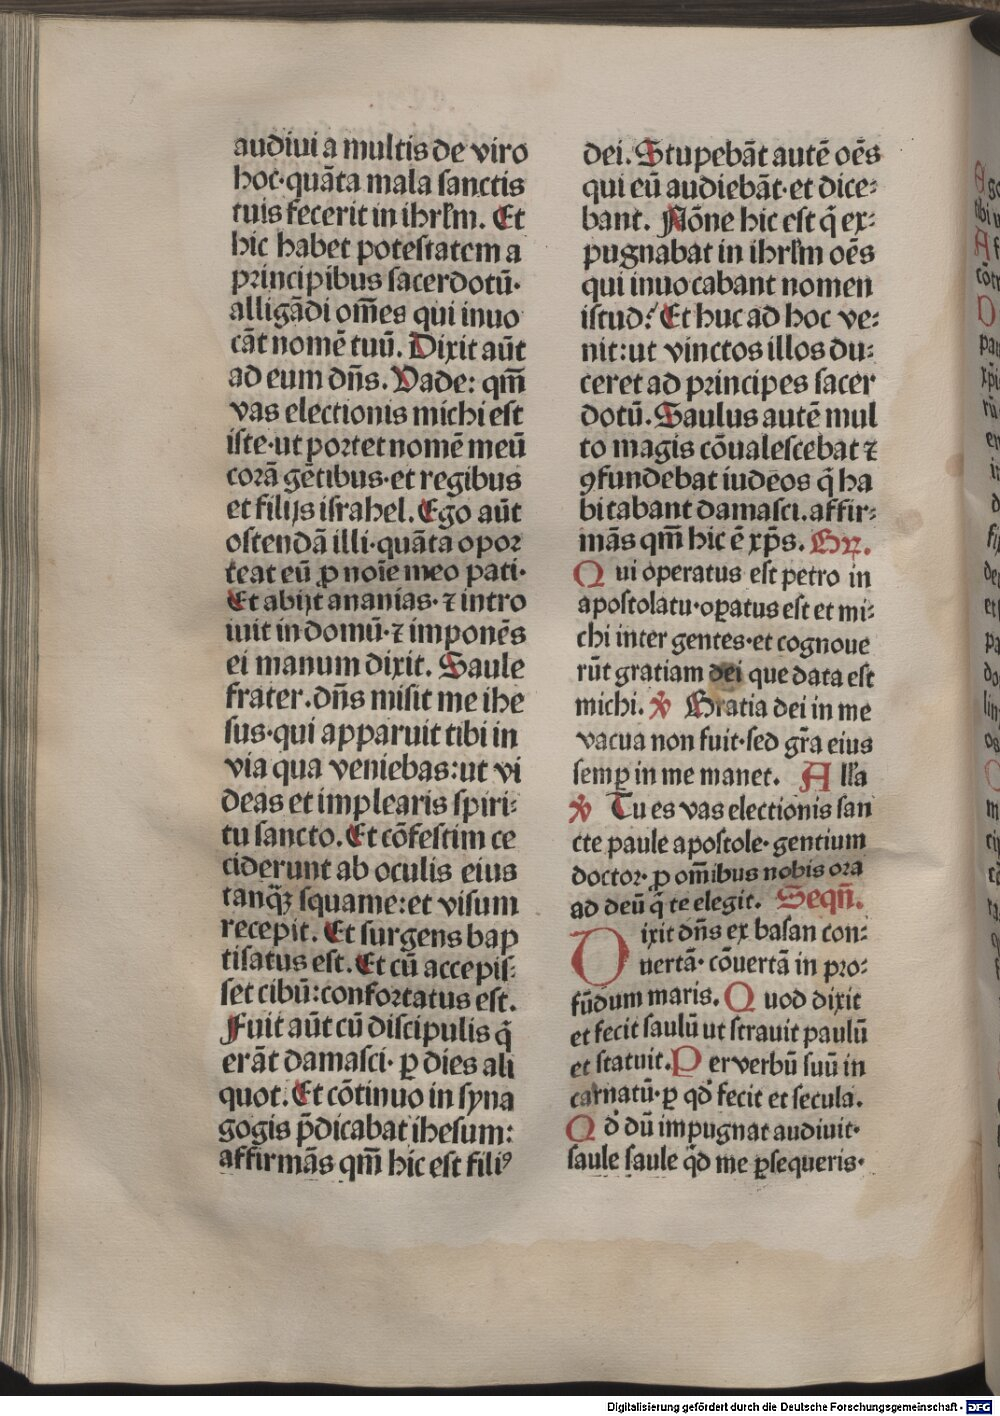 audiui a multis de viro
hoc·quãta mala sanctis
tuis fecerit in ihrl̃m. Et
hic habet potestatem a
principibus sacerdotũ·
alligãdi om̃es qui inuo
cãt nomẽ tuũ. Dixit aũt
ad eum dñs. Vade: qm̃
vas electionis michi est
iste·ut portet nomẽ meũ
corã gẽtibus·et regibus
et filijs israhel. Ego aũt
ostendã illi·quãta opor
teat eũ ꝓ noĩe meo pati·
Et abijt ananias·⁊ intro
iuit in domũ·⁊ imponẽs
ei manum dixit. Saule
frater.dñs misit me ihe
sus·qui apparuit tibi in
via qua veniebas:ut vi
deas et implearis spiri:
tu sancto. Et cõfestim ce
ciderunt ab oculis eius
tanq̃ꝫ squame:et visum
recepit. Et surgens bap
tisatus est. Et cũ accepis:
set cibũ:confortatus est.
Fuit aũt cũ discipulis q̃
erãt damasci·ꝑ dies ali
quot. Et cõtinuo in syna
gogis p̃dicabat ihesum:
affirmãs qm̃ hic est filiꝰ
dei. Stupebãt autẽ oẽs
qui eũ audiebãt·et dice:
bant. Nõne hic est q̃ ex:
pugnabat in ihrl̃m oẽs
qui inuocabant nomen
istud? Et huc ad hoc ve:
nit:ut vinctos illos du:
ceret ad principes sacer
dotũ. Saulus autẽ mul
to magis cõualescebat ⁊
ꝯfundebat iudeos q̃ ha
bitabant damasci.affir:
mãs qm̃ hic ẽ xp̃s. Gr̃.
Qui operatus est petro in
apostolatu·oꝑatus est et mi:
chi inter gentes·et cognoue
rũt gratiam dei que data est
michi. ℣ Gratia dei in me
vacua non fuit·sed gr̃a eius
semꝑ in me manet. All̃a
℣ Tu es vas electionis san
cte paule apostole·gentium
doctor·ꝓ om̃ibus nobis ora
ad deũ q̃ te elegit. Seqñ.
Dixit dñs ex basan con:
uertã·cõuertã in pro:
fũdum maris. Quod dixit
et fecit saulũ ut strauit paulũ
et statuit. Per verbũ suũ in
carnatũ·ꝑ qd̾ fecit et secula.
Qd̾ dũ impugnat audiuit·
saule saule q̃d me ꝑsequeris·
Digitalisierung gefördert durch die Deutsche Forschungsgemeinschaft - DFG